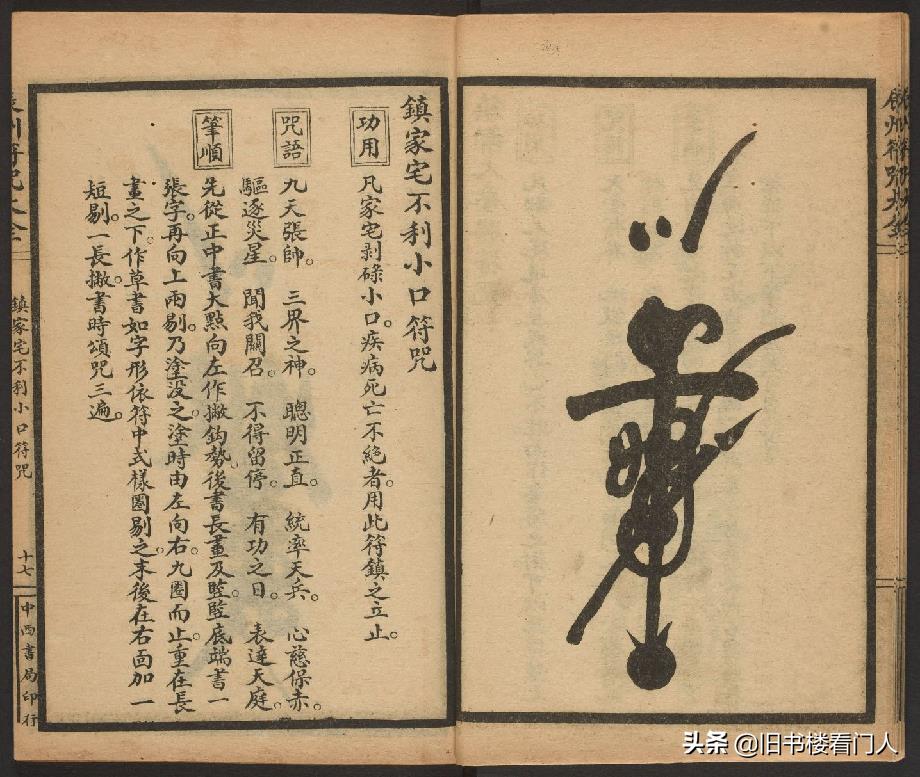 鎮家宅不利小口符咒
功用
凡家宅剥碌小口。疾病死亡不絶者。用此符鎮之立止。
咒語
九天張帥。 三界之神。 聰明正直。 統率天兵。 心慈保赤。
驅逐災星。 聞我關召。 不得留停。 有功之日。 表達天庭。
筆順
先從正中書大點向左作撇鈎勢。後書長畫及竪。竪底端書一
張字。再向上兩剔。乃塗没之。塗時由左向右。九圈而止。重在長
畫之下。作草書如字形依符中式樣圈剔之。末後在右面加一
短剔。一長撇書時頌咒三遍。
鎮家宅不利小口符咒
十七
中西書局印行
头条 @旧书楼看门人